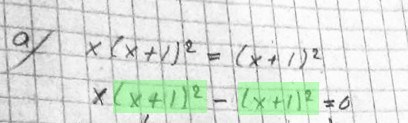 a) x(x+1)² = (x+1)²
x(x+1)² - (x+1)² = 0